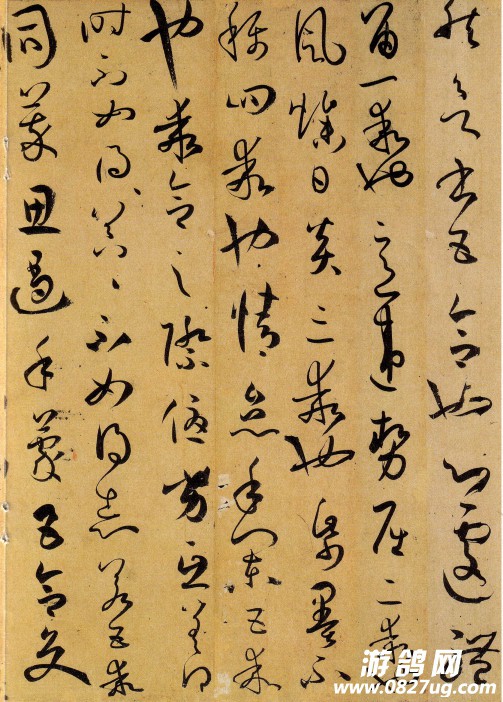 然欲書五合也心遽體
留一乖也意違勢屈二乖也
風燥日炎三乖也紙墨不
稱四乖也情怠手闌五乖
也乖合之際優劣互差得
時不如得器〻不如得志若五乖
同萃思遏手蒙五合交
游鸽网
www.0827ug.com